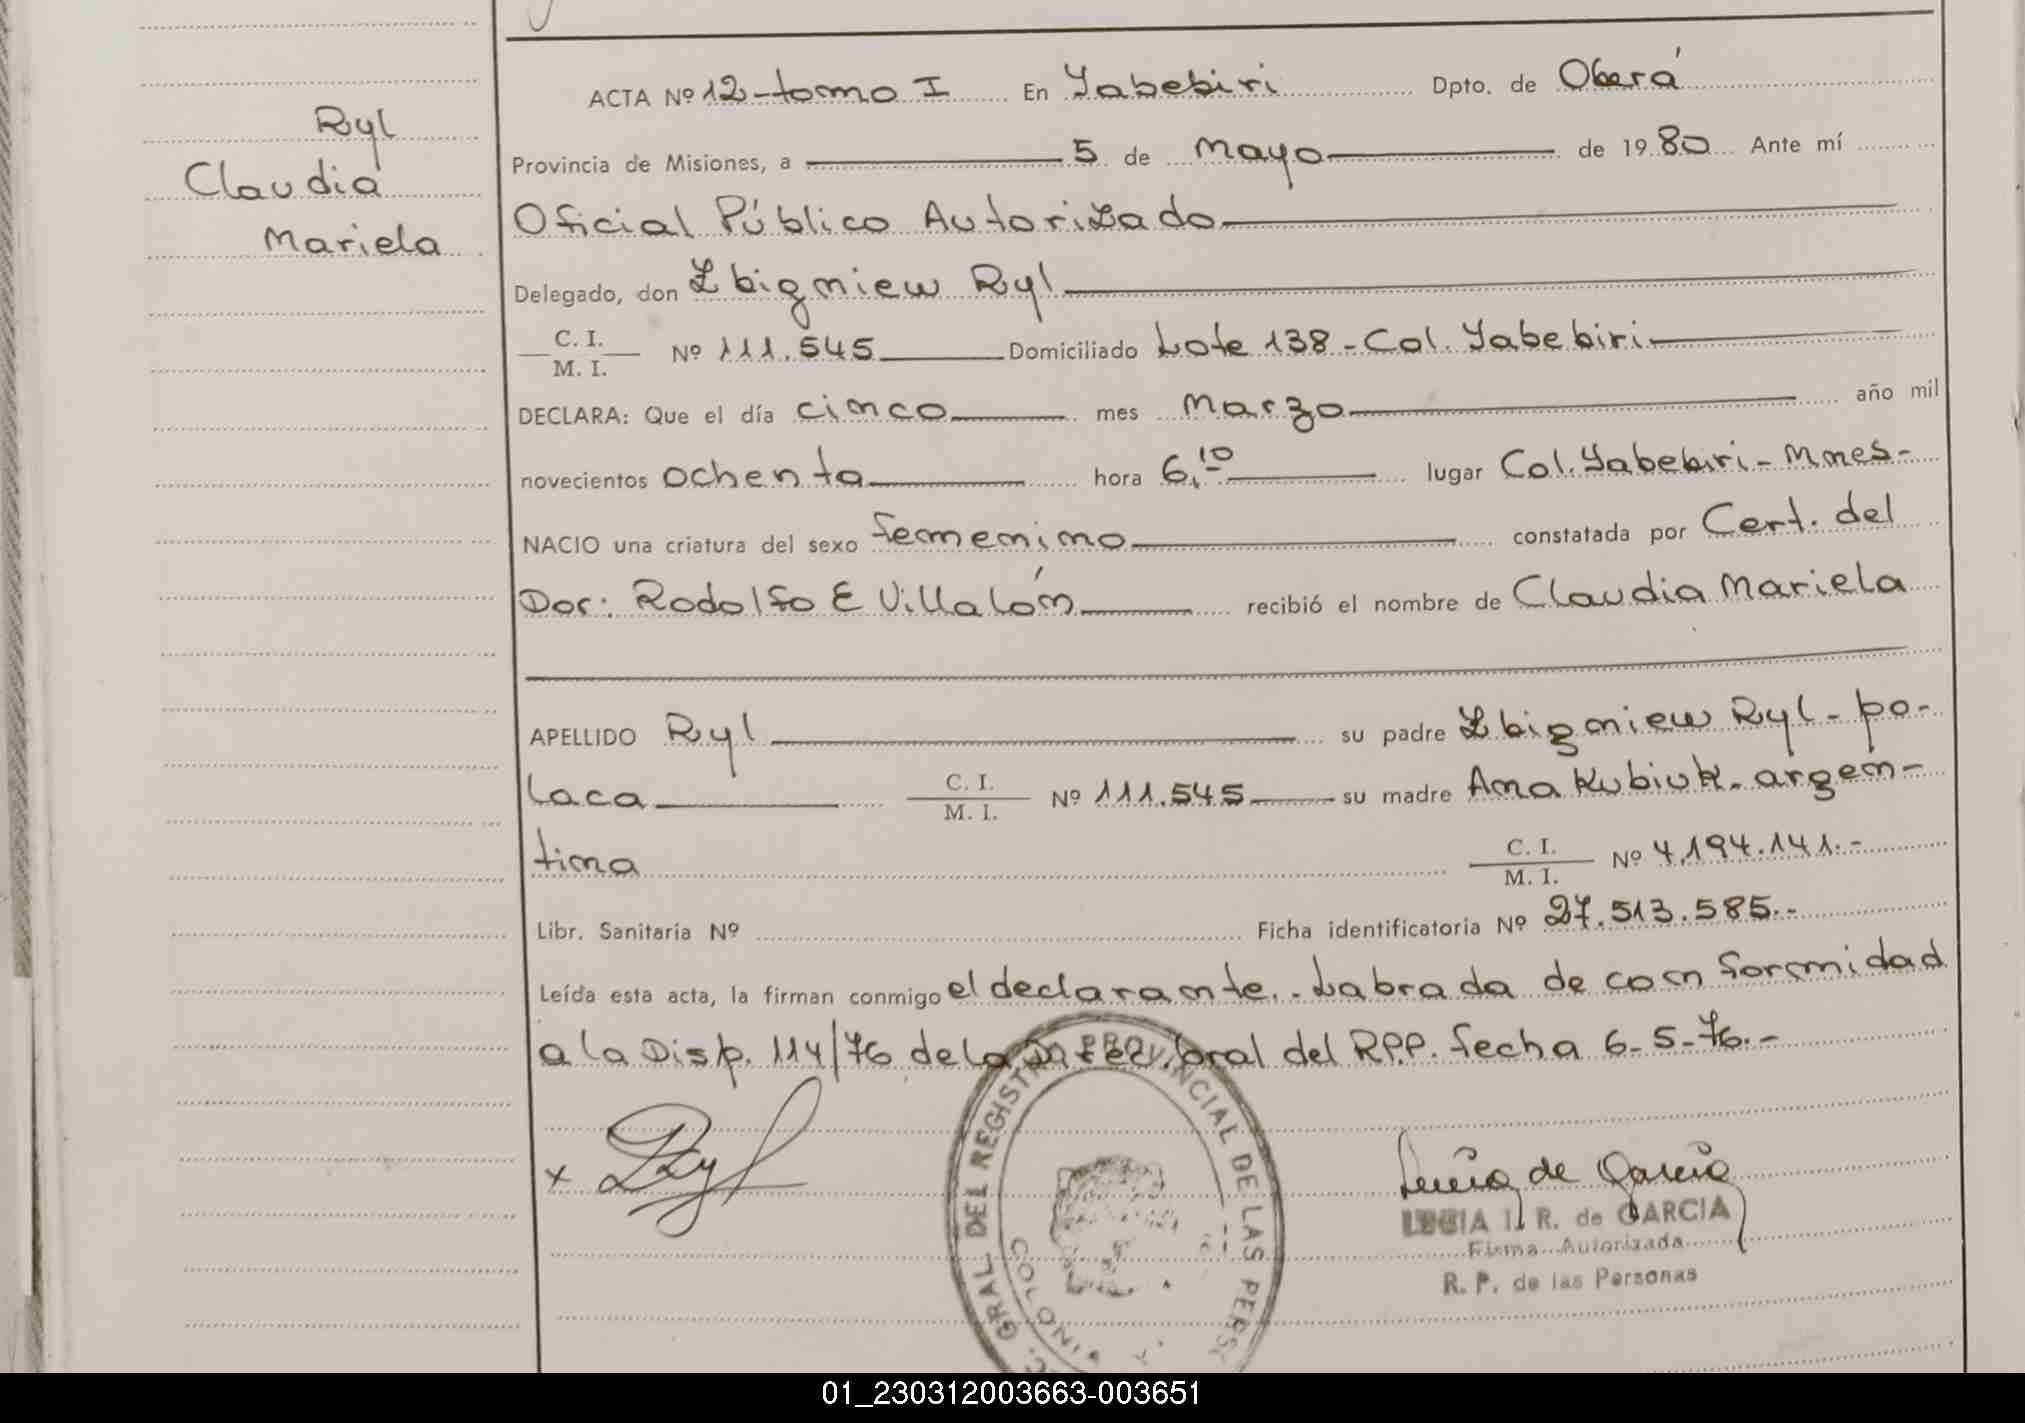 Ryl
Claudia
Mariela
ACTA Nº 12-tomo I En Yabebiri Dpto. de Oberá
Provincia de Misiones, a 5 de mayo de 1980 Ante mí
Oficial Público Autorizado
Delegado, don Zbigniew Ryl
C. I.
M. I. Nº 111.545 Domiciliado Lote 138-Col. Yabebiri
DECLARA: Que el día cinco mes marzo año mil
novecientos ochenta hora 6,10 lugar Col. Yabebiri-Mnes-
NACIO una criatura del sexo femenino constatada por Cert. del
Doc: Rodolfo E Villalón recibió el nombre de Claudia Mariela
APELLIDO Ryl su padre Zbigniew Ryl- po-
laca C. I. M. I. Nº 111.545 su madre Ana Kubiuk- argen-
tina C. I. M. I. Nº 4.194.141.-
Libr. Sanitaria Nº Ficha identificatoria Nº 27.513.585.-
Leída esta acta, la firman conmigo el declarante.- Labrada de con formidad
a la Disp. 114/76 de la Direc. Gral del R.P.P. fecha 6-5-76.-
x Ryl
C. GRAL DEL REGISTRO PROVINCIAL DE LAS PERSO
COLONIA
Lucia de Garcia
LUCIA I. R. de GARCIA
Firma Autorizada
R. P. de las Personas
01_230312003663-003651